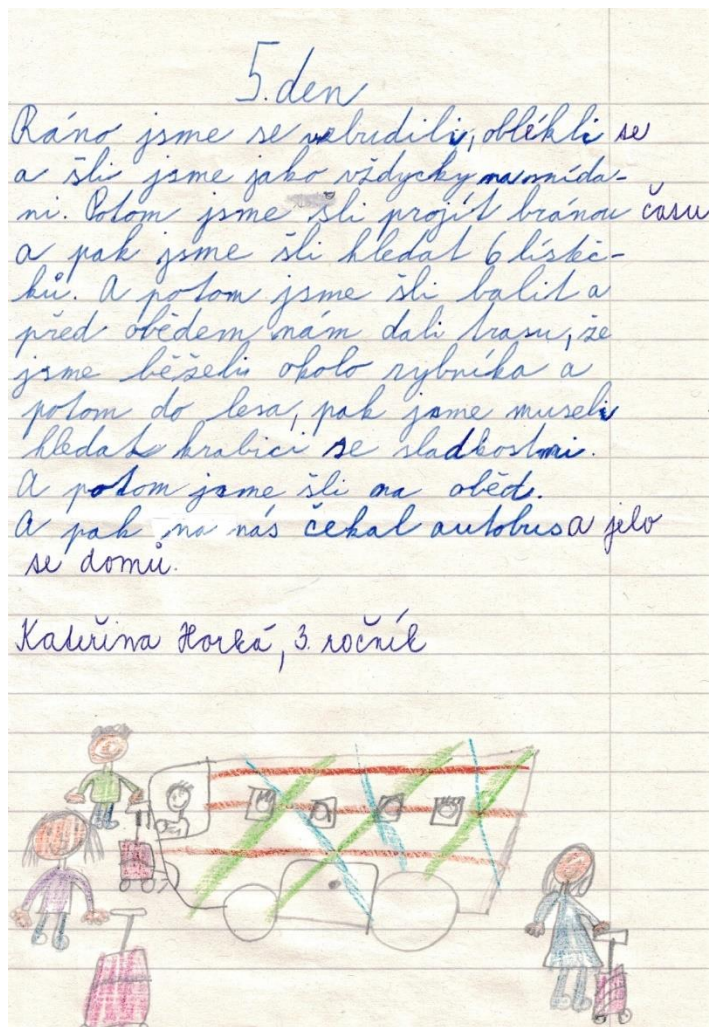 5. den
Ráno jsme se vzbudili, oblékli se
a šli jsme jako vždycky na snída-
ni. Potom jsme šli projít bránou času
a pak jsme šli hledat 6 lísteč-
ků. A potom jsme šli balit a
před obědem nám dali trasu, že
jsme běželi okolo rybníka a
potom do lesa, pak jsme museli
hledat krabici se sladkostmi.
A potom jsme šli na oběd.
A pak na nás čekal autobus a jelo
se domů.
Kateřina Horká, 3. ročník